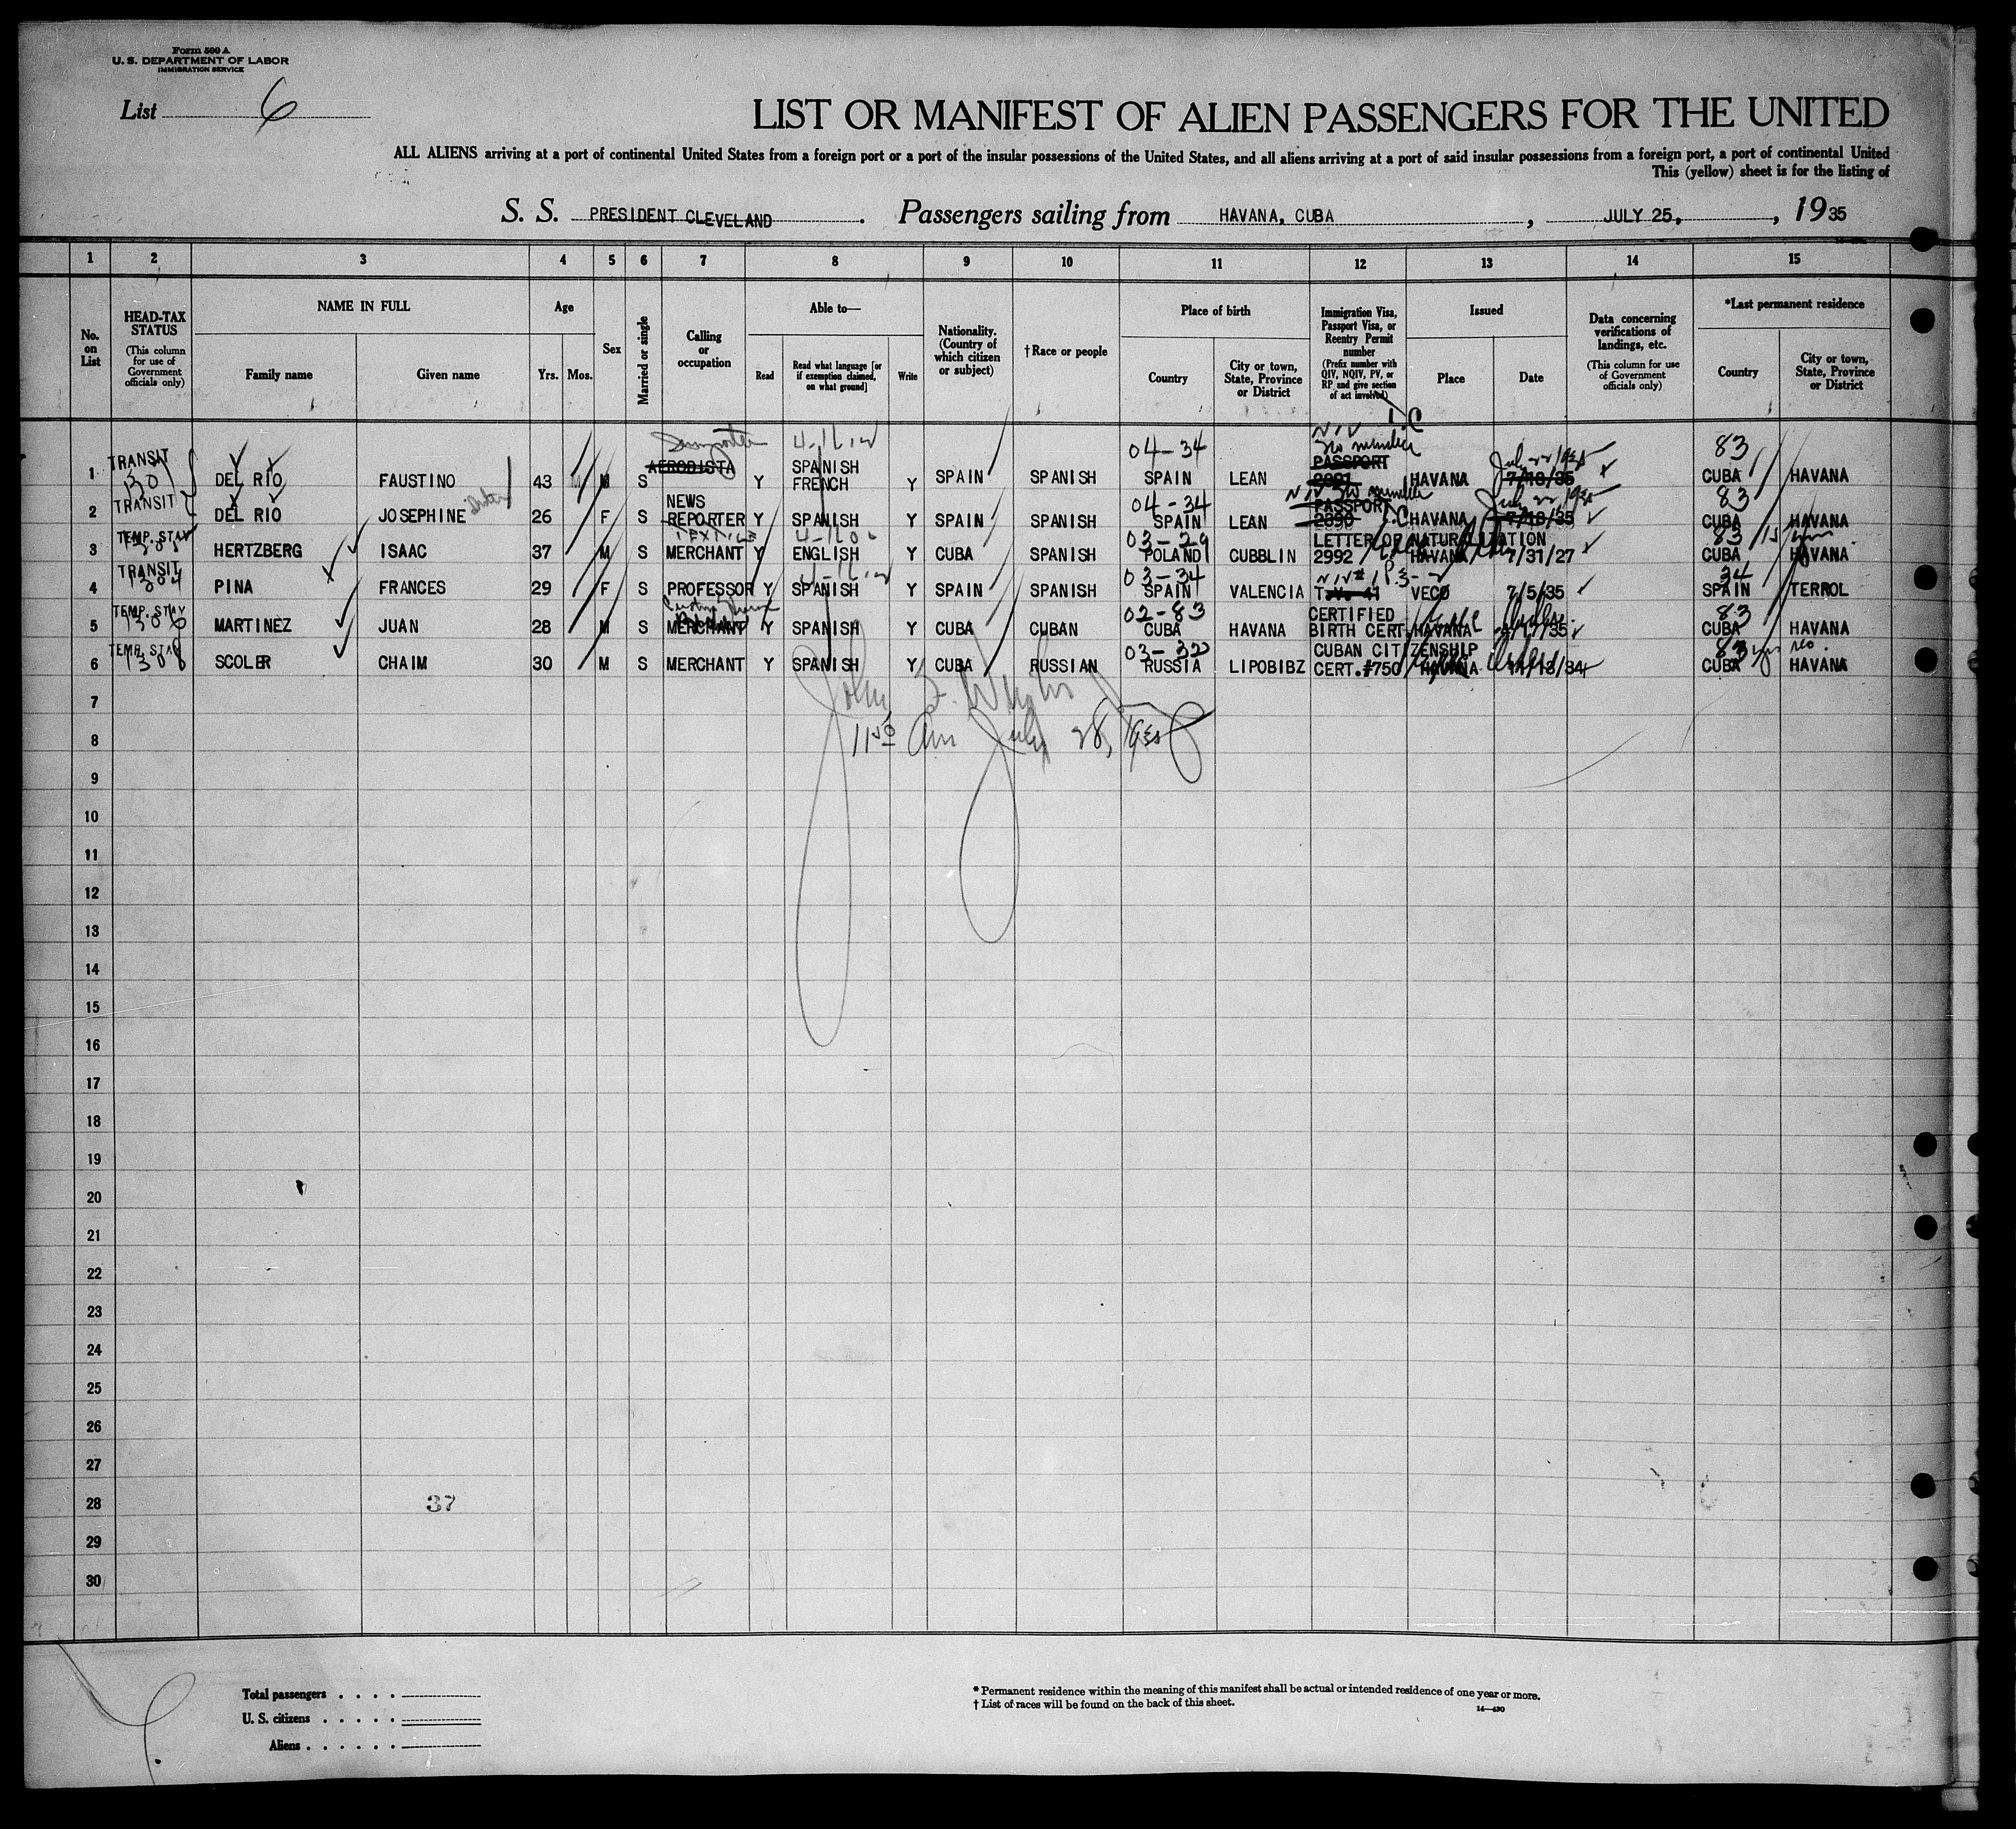 Form 500 A
U. S. DEPARTMENT OF LABOR
IMMIGRATION SERVICE
List 6
LIST OR MANIFEST OF ALIEN PASSENGERS FOR THE UNITED
ALL ALIENS arriving at a port of continental United States from a foreign port or a port of the insular possessions of the United States, and all aliens arriving at a port of said insular possessions from a foreign port, a port of continental United
This (yellow) sheet is for the listing of
S. S. PRESIDENT CLEVELAND . Passengers sailing from HAVANA, CUBA , JULY 25, , 1935
1 2 3 4 5 6 7 8 9 10 11 12 13 14 15
No. on List
HEAD-TAX STATUS (This column for use of Government officials only)
NAME IN FULL
Family name Given name
Age
Yrs. Mos.
Sex
Married or single
Calling or occupation
Able to—
Read Read what language [or if exemption claimed, on what ground] Write
Nationality. (Country of which citizen or subject)
†Race or people
Place of birth
Country City or town, State, Province or District
Immigration Visa, Passport Visa, or Reentry Permit number (Prefix number with QIV, NQIV, PV, or RP and give section of act involved)
Issued
Place Date
Data concerning verifications of landings, etc. (This column for use of Government officials only)
*Last permanent residence
Country City or town, State, Province or District
1 TRANSIT DEL RIO FAUSTINO 43 M S AERODISTA Y SPANISH FRENCH Y SPAIN SPANISH 04-34 SPAIN LEAN NIV No number PASSPORT HAVANA July 22 1935 7/18/35 83 CUBA HAVANA
2 TRANSIT DEL RIO JOSEPHINE 26 F S NEWS REPORTER Y SPANISH Y SPAIN SPANISH 04-34 SPAIN LEAN NIV No number PASSPORT 2890 HAVANA July 22 1935 7/18/35 83 CUBA HAVANA
3 TEMP. STAY HERTZBERG ISAAC 37 M S TEXTILE MERCHANT Y ENGLISH Y CUBA SPANISH 03-29 POLAND CUBBLIN LETTER OF NATURALITATION 2992 HAVANA 7/31/27 83 CUBA HAVANA
4 TRANSIT 1304 PINA FRANCES 29 F S PROFESSOR Y SPANISH Y SPAIN SPANISH 03-34 SPAIN VALENCIA VECO 7/5/35 34 SPAIN TERROL
5 TEMP. STAY 1306 MARTINEZ JUAN 28 M S MERCHANT Y SPANISH Y CUBA CUBAN 02-83 CUBA HAVANA CERTIFIED BIRTH CERT. HAVANA 83 CUBA HAVANA
6 TEMP. STAY 1308 SCOLER CHAIM 30 M S MERCHANT Y SPANISH Y CUBA RUSSIAN 03-32 RUSSIA LIPOBIBZ CUBAN CITIZENSHIP CERT.#750 HAVANA 11/13/34 83 CUBA HAVANA
7
8 July 28, 1935
9
10
11
12
13
14
15
16
17
18
19
20
21
22
23
24
25
26
27
28 37
29
30
Total passengers . . . .
U. S. citizens . . . . .
Aliens . . . . . .
* Permanent residence within the meaning of this manifest shall be actual or intended residence of one year or more.
† List of races will be found on the back of this sheet.
14—430